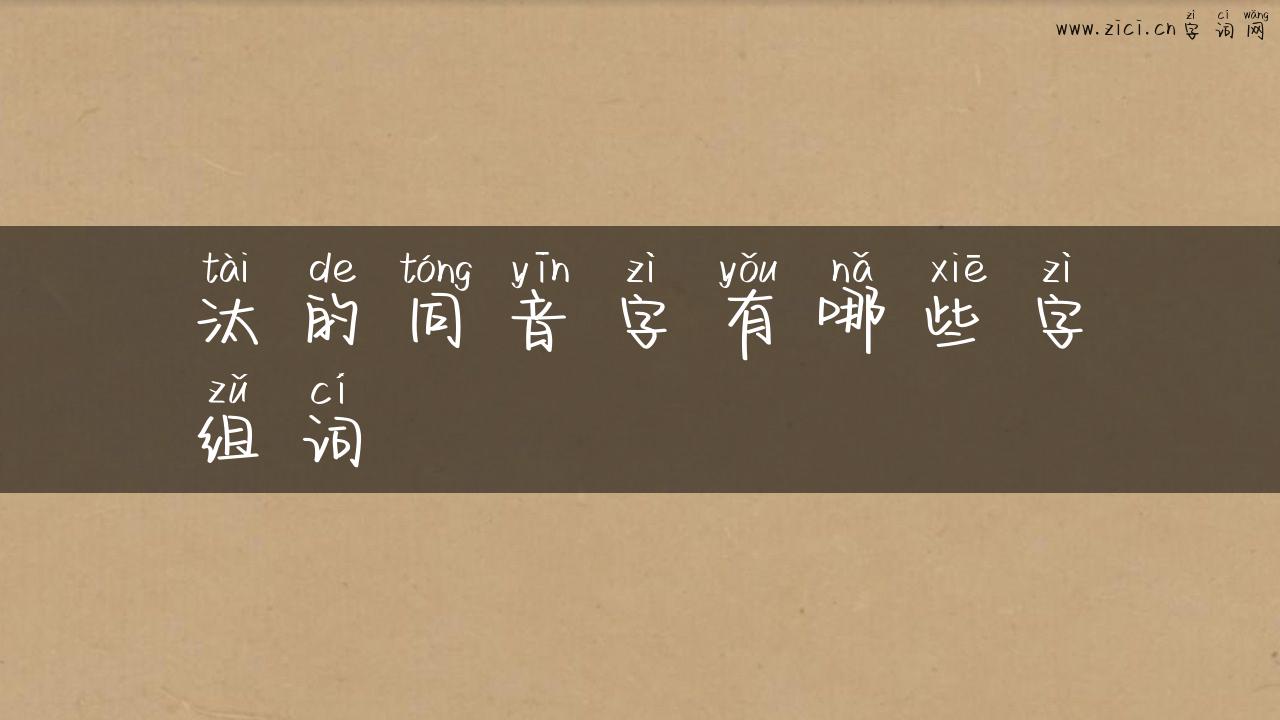 www.zici.cn zì cí wǎng
字词网
tài de tóng yīn zì yǒu nǎ xiē zì
汰的同音字有哪些字
zǔ cí
组词